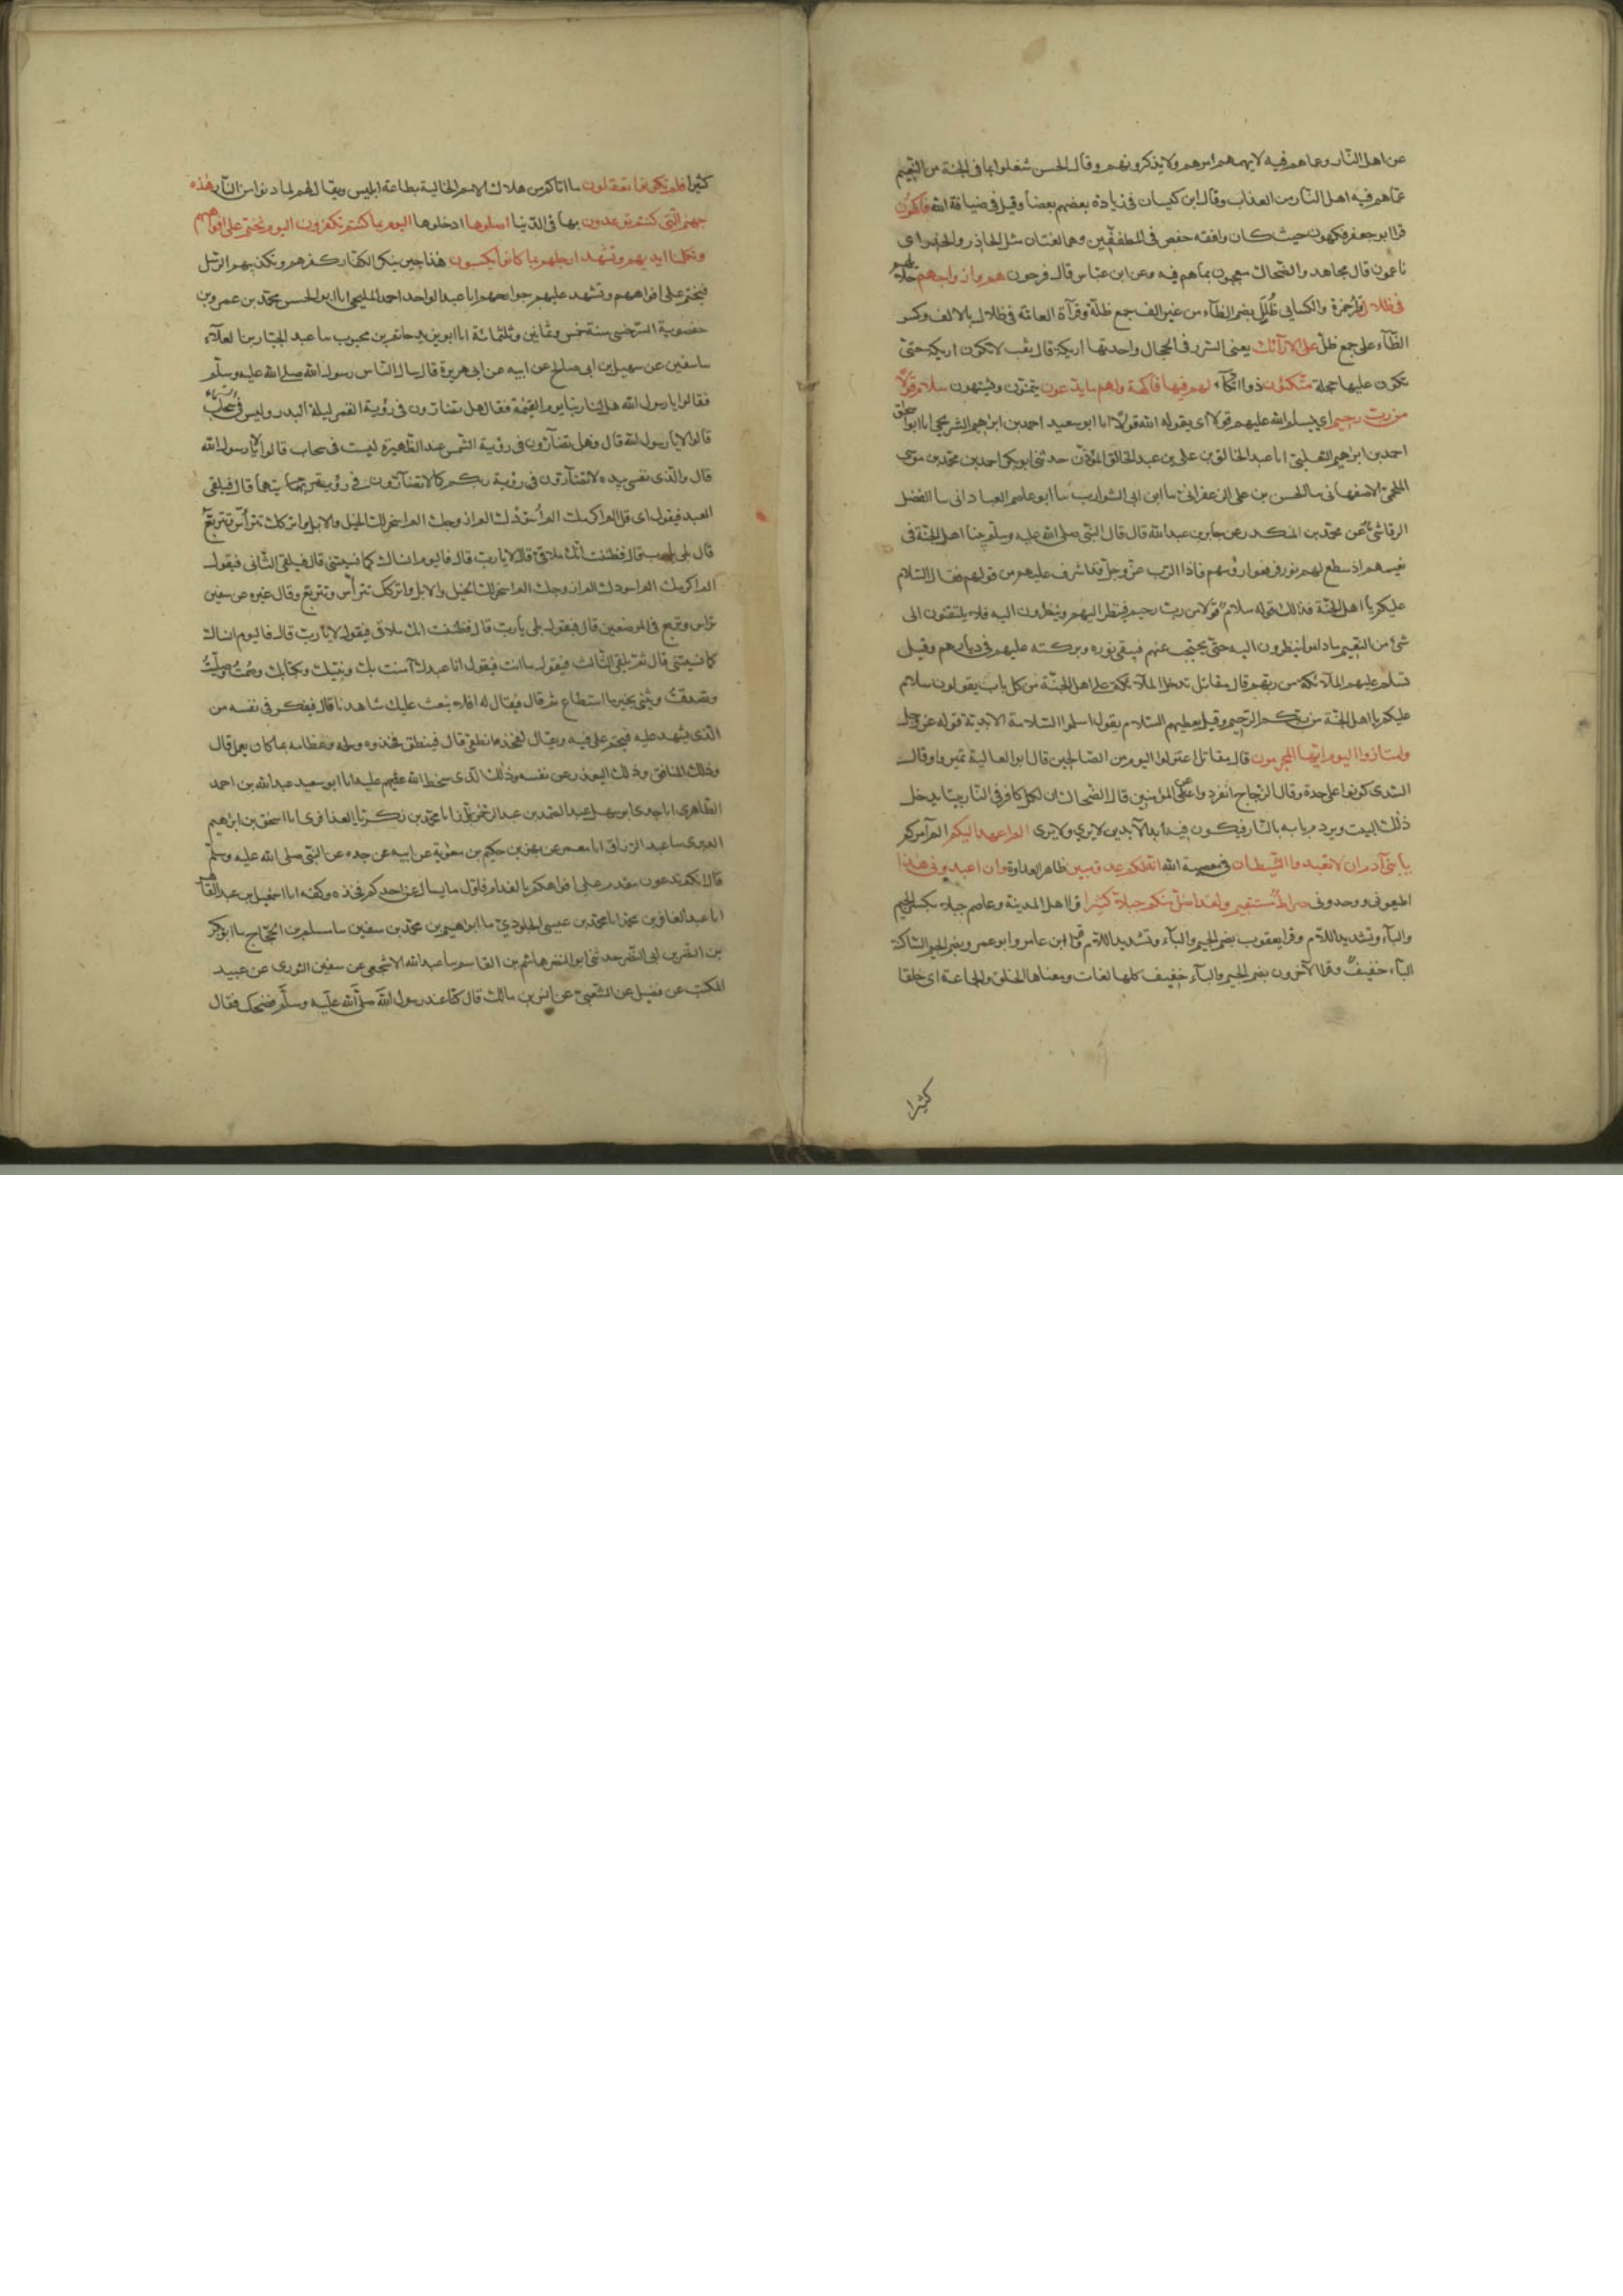 عن اهل النار وعما هم فيه لا يهمهم امرهم ولا يذكرونهم وقال الحسن شغلوا بما فى الجنة من النعيم
عما هم فيه اهل النار من العذاب وقال ابن كيسان فى زيارة بعضهم بعضا وقيل فى ضيافة الله فاكهون
قرا ابو جعفر فكهون حيث كان وافقه حفص فى المطففين وهما لغتان مثل الحاذر والحذر اى
ناعمون قال مجاهد والضحاك معجبون بما هم فيه وعن ابن عباس قال فرحون هم وازواجهم حلائلهم
فى ظلال قرا حمزة والكسايى ظلل بضم الظآء من غير الف جمع ظلة وقرآة العامة فى ظلال بالالف وكسر
الظآء على جمع ظل على الارآئك يعنى السرر فى الحجال واحدتها اريكة قال ثعلب لا تكون اريكة حتى
تكون عليها حجلة متكئون ذوو اتكآء لهم فيها فاكهة ولهم ما يدعون يتمنون ويشتهون سلام قولا
من رب رحيم اى يسلم الله عليهم قولا اى يقوله الله قولا انا ابو سعيد احمد بن ابرهيم الشريحى انا ابو اسحق
احمد بن ابرهيم الثعلبى انا عبد الخالق بن على بن عبد الخالق المؤذن حدثنى ابو بكر احمد بن محمد بن موسى
الملحمى الاصفهانى سا الحسن بن على الزعفرانى سا ابن ابى الشوارب سا ابو عاصم العبادانى سا الفضل
الرقاشى عن محمد بن المنكدر عن جابر بن عبد الله قال قال النبى صلى الله عليه وسلم بينا اهل الجنة فى
نعيمهم اذ سطع لهم نور فرفعوا رؤسهم فاذا الرب عز وجل قد اشرف عليهم من فوقهم فقال السلام
عليكم يا اهل الجنة فذلك قوله سلام قولا من رب رحيم فينظر اليهم وينظرون اليه فلا يلتفتون الى
شئ من النعيم ما داموا ينظرون اليه حتى يحتجب عنهم فيبقى نوره وبركته عليهم فى ديارهم وقيل
تسلم عليهم الملآئكة من ربهم قال مقاتل تدخل الملآئكة على اهل الجنة من كل باب يقولون سلام
عليكم يا اهل الجنة من ربكم الرحيم وقيل يعطيهم السلام يقول اسلموا السلامة الابدية قوله عز وجل
وامتازوا اليوم ايها المجرمون قال مقاتل اعتزلوا اليوم من الصالحين قال ابو العالية تميزوا وقال
السدى كونوا على حدة وقال الزجاج انفردوا عن المؤمنين قال الضحاك ان لكل كافر فى النار بيتا يدخل
ذلك البيت ويردم بابه بالنار فيكون فيه ابد الآبدين لا يرى ولا يرى الم اعهد اليكم الم آمركم
يا بنى آدم ان لا تعبدوا الشيطان فى معصية الله انه لكم عدو مبين ظاهر العداوة وان اعبدونى هذا
اطيعونى ووحدونى صراط مستقيم ولقد اضل منكم جبلا كثيرا قرا اهل المدينة وعاصم جبلا بكسر الجيم
والبآء وتشديد اللام وقرا يعقوب بضم الجيم والبآء وتشديد اللام وقرا ابن عامر وابو عمرو بضم الجيم الساكنة
البآء خفيف وقرا الآخرون بضم الجيم والبآء خفيف كلها لغات ومعناها الخلق والجماعة اى خلقا
كثيرا
كثيرا افلم تكونوا تعقلون ما اتاكم من هلاك الامم الخالية بطاعة ابليس ويقال لهم لما دنوا من النار هذه
جهنم التى كنتم توعدون بها فى الدنيا اصلوها ادخلوها اليوم بما كنتم تكفرون اليوم نختم على افواههم
وتكلمنا ايديهم وتشهد ارجلهم بما كانوا يكسبون هذا حين ينكر الكفار كفرهم وتكذيبهم الرسل
فيختم على افواههم وتشهد عليهم جوارحهم انا عبد الواحد احمد المليحى انا ابو الحسن محمد بن عمرو بن
حفصوية السرخسى سنة خمس وثمانين وثلثمائة انا ابو يزيد حاتم بن محبوب سا عبد الجبار بن العلآء
سا سفين عن سهيل بن ابى صالح عن ابيه عن ابى هريرة قال سال الناس رسول الله صلى الله عليه وسلم
فقالوا يا رسول الله هل نرى ربنا يوم القيمة فقال هل تضارون فى رؤية القمر ليلة البدر وليس فى سحاب
قالوا لا يا رسول الله قال وهل تضآرون فى رؤية الشمس عند الظهيرة ليست فى سحاب قالوا لا يا رسول الله
قال والذى نفسى بيده لا تضآرون فى رؤية ربكم كما لا تضآرون فى رؤيتهما قال فيلقى
العبد فيقول اى فل الم اكرمك الم اسودك الم ازوجك الم اسخر لك الخيل والابل واتركك تترأس وتتربع
قال بلى يا رب قال فظننت انك ملاقى قال لا يا رب قال فاليوم انساك كما نسيتنى قال فيلقى الثانى فيقول
الم اكرمك الم اسودك الم ازوجك الم اسخر لك الخيل والابل واتركك تترأس وتتربع وقال غيره عن سفين
تراس وتربع فى الموضعين قال فيقول بلى يا رب قال فظننت انك ملاقى فيقول لا يا رب قال فاليوم انساك
كما نسيتنى قال ثم يلقى الثالث فيقول ما انت فيقول انا عبدك آمنت بك وبنبيك وبكتابك وصمت وصليت
وتصدقت ويثنى بخير ما استطاع ثم قال فيقال له افلا نبعث عليك شاهدنا قال فيفكر فى نفسه من
الذى يشهد عليه فيختم على فيه ويقال لفخذه انطقى قال فينطق فخذه ولحمه وعظامه بما كان يعمل قال
وذلك المنافق وذلك ليعذر من نفسه وذلك الذى سخط الله عليه انا ابو سعيد عبد الله بن احمد
الطاهرى انا جدى ابو سهل عبد الصمد بن عبد الرحمن البزاز انا محمد بن زكريا العذافرى انا اسحق بن ابرهيم
الدبرى سا عبد الرزاق انا معمر عن بهز بن حكيم بن معوية عن ابيه عن جده عن النبى صلى الله عليه وسلم
قال انكم تدعون مفدم على افواهكم بالفدام فاول ما يسال عن احدكم فخذه وكفه انا اسمعيل بن عبد القاهر
انا عبد الغافر بن محمد انا محمد بن عيسى الجلودى سا ابراهيم بن محمد بن سفين سا مسلم بن الحجاج سا ابو بكر
بن النضر بن ابى النضر حدثنى ابو النضر هاشم بن القاسم سا عبد الله الاشجعى عن سفين الثورى عن عبيد
المكتب عن فضيل عن الشعبى عن انس بن مالك قال كنا عند رسول الله صلى الله عليه وسلم فضحك فقال